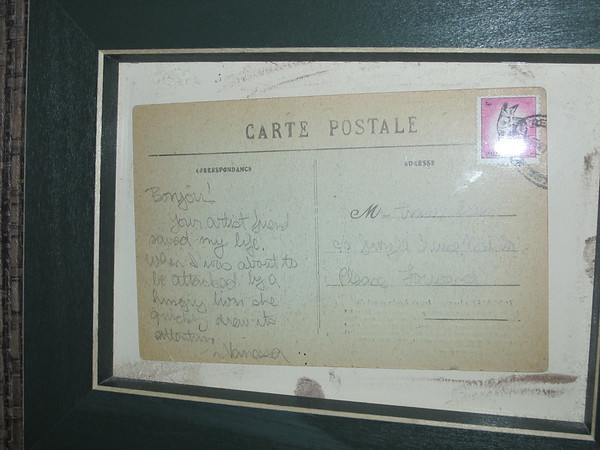 CARTE POSTALE
CORRESPONDANCE
ADRESSE
Bonjour!
Your artist friend
saved my life.
When I was about to
be attacked by a
hungry lion she
quickly drew its
attention.
~Vanessa
M
Please Forward